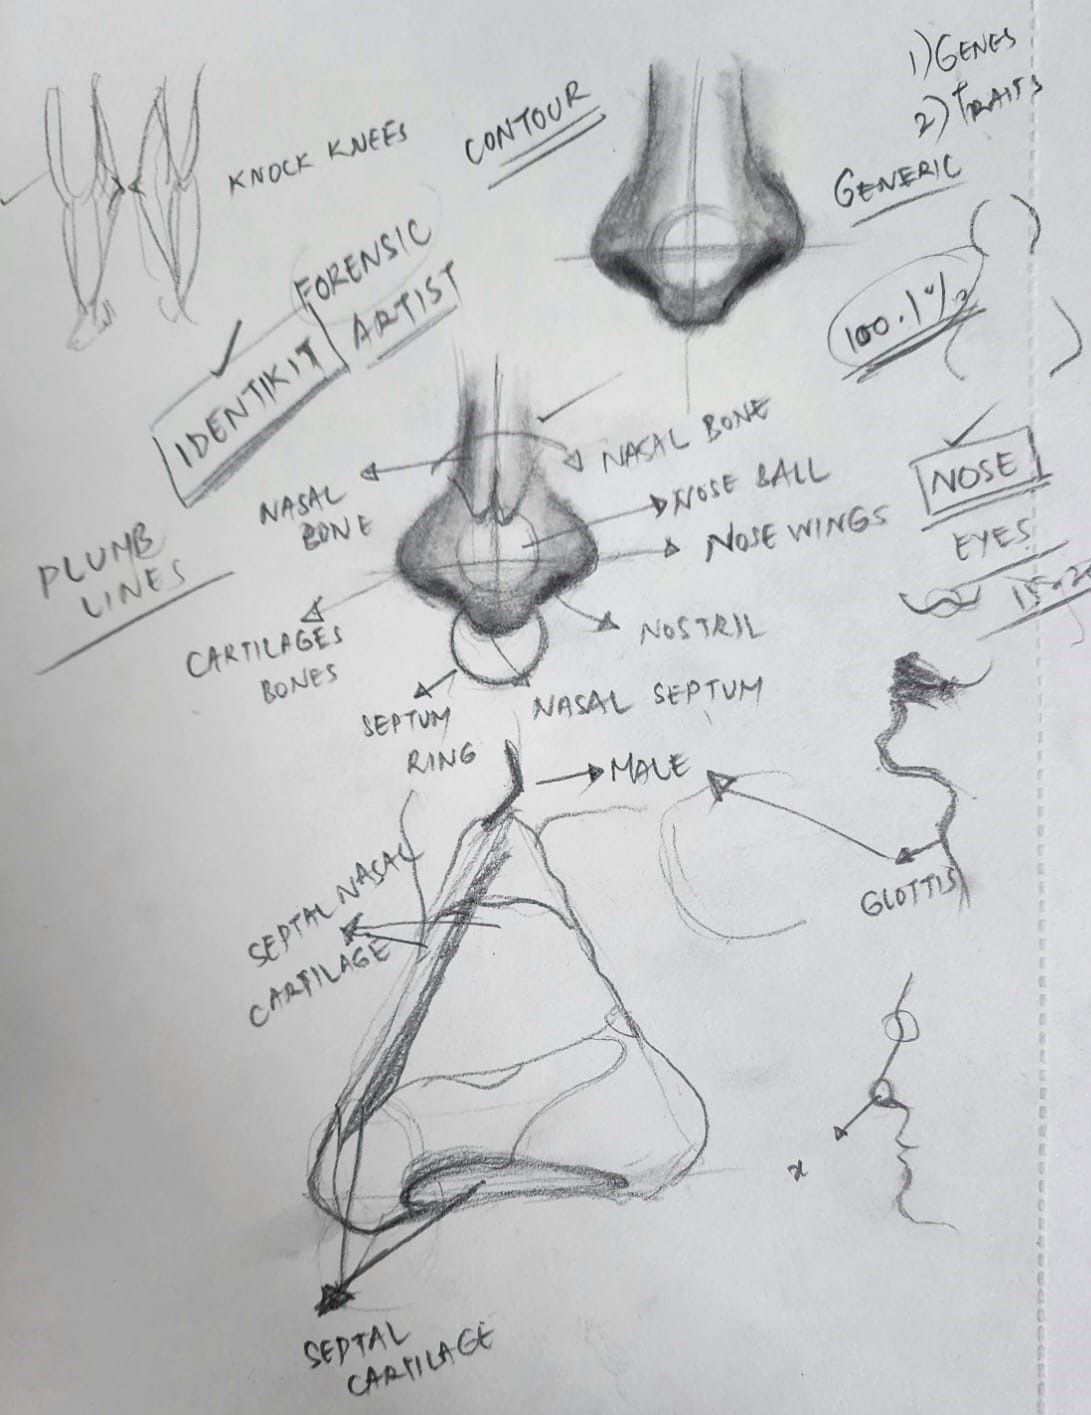 1) GENES
2) TRAITS
CONTOUR
KNOCK KNEES
GENERIC
FORENSIC
ARTIST
100.1%
IDENTIKIT
NASAL BONE
NASAL
BONE
NOSE BALL
NOSE
NOSE WINGS
EYES
PLUMB
LINES
CARTILAGES
BONES
NOSTRIL
SEPTUM
RING
NASAL SEPTUM
MALE
SEPTAL NASAL
CARTILAGE
GLOTTIS
x
SEPTAL
CARTILAGE